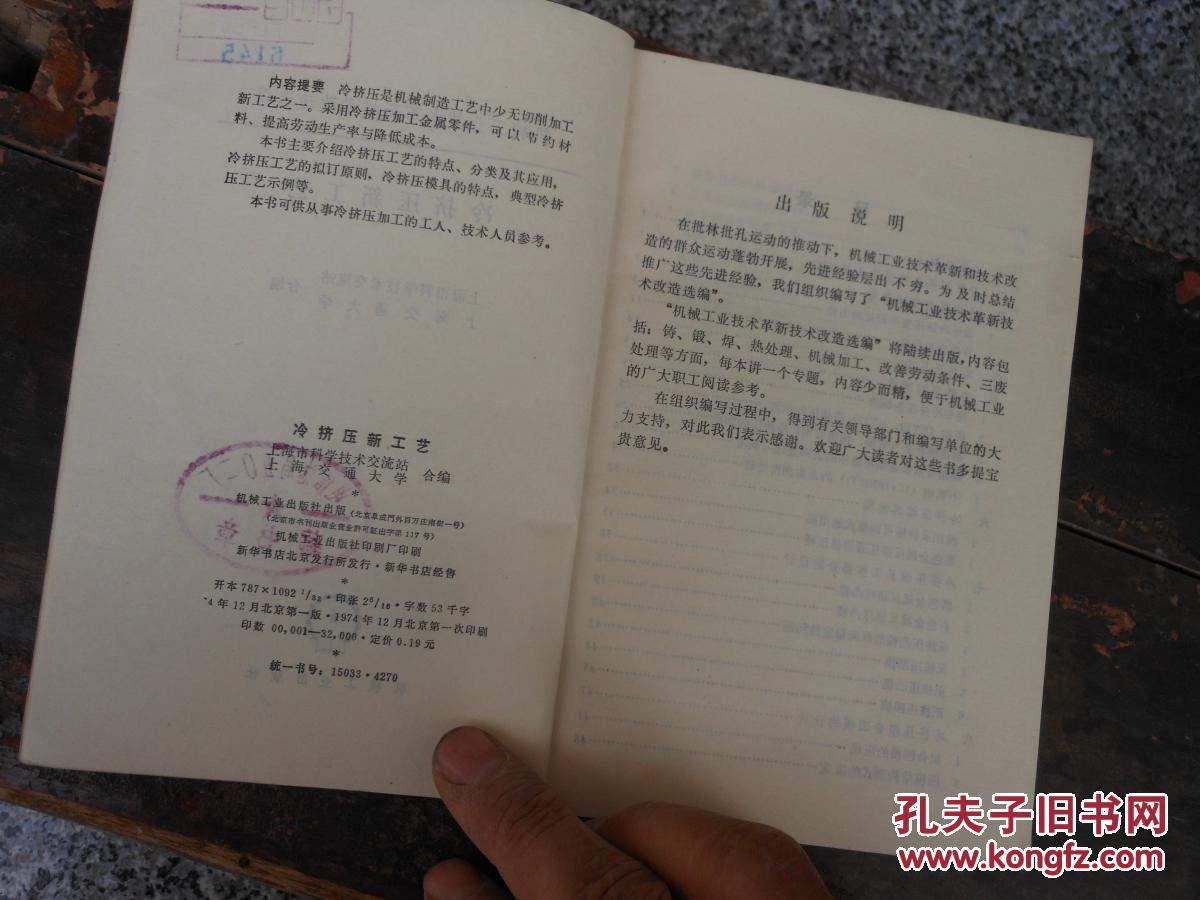 6145
内容提要 冷挤压是机械制造工艺中少无切削加工
新工艺之一。采用冷挤压加工金属零件，可以节约材
料、提高劳动生产率与降低成本。
本书主要介绍冷挤压工艺的特点、分类及其应用，
冷挤压工艺的拟订原则，冷挤压模具的特点，典型冷挤
压工艺示例等。
本书可供从事冷挤压加工的工人、技术人员参考。
冷挤压新工艺
上海市科学技术交流站
上海交通大学 合编
*
机械工业出版社出版（北京阜成门外百万庄南街一号）
（北京市书刊出版业营业许可证出字第117号）
机械工业出版社印刷厂印刷
新华书店北京发行所发行·新华书店经售
*
开本 787×1092 1/32·印张 2 5/16·字数 53 千字
4年12月北京第一版·1974年12月北京第一次印刷
印数 00,001—32,000·定价 0.19 元
*
统一书号：15033·4270
出版说明
在批林批孔运动的推动下，机械工业技术革新和技术改
造的群众运动蓬勃开展，先进经验层出不穷。为及时总结
推广这些先进经验，我们组织编写了“机械工业技术革新技
术改造选编”。
“机械工业技术革新技术改造选编”将陆续出版，内容包
括：铸、锻、焊、热处理、机械加工、改善劳动条件、三废
处理等方面，每本讲一个专题，内容少而精，便于机械工业
的广大职工阅读参考。
在组织编写过程中，得到有关领导部门和编写单位的大
力支持，对此我们表示感谢。欢迎广大读者对这些书多提宝
贵意见。
孔夫子旧书网
www.kongfz.com